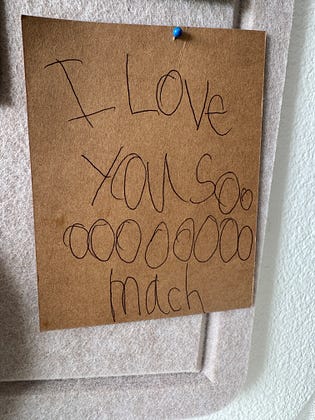 I LOVe
YOU Soo
ooooooooo
mach